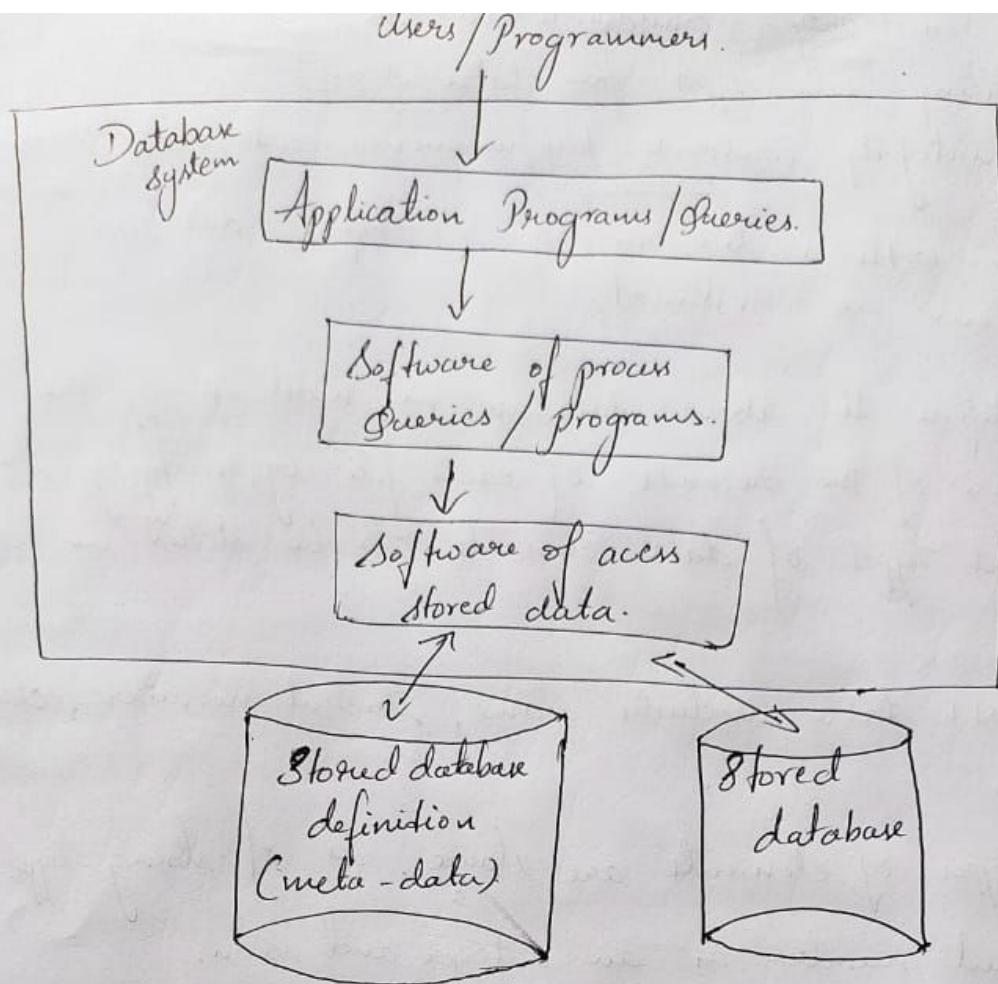 Users/Programmers.
Database
system
Application Programs/Queries.
Software of process
Queries/programs.
Software of acess
stored data.
Stored database
definition
(meta-data)
Stored
database